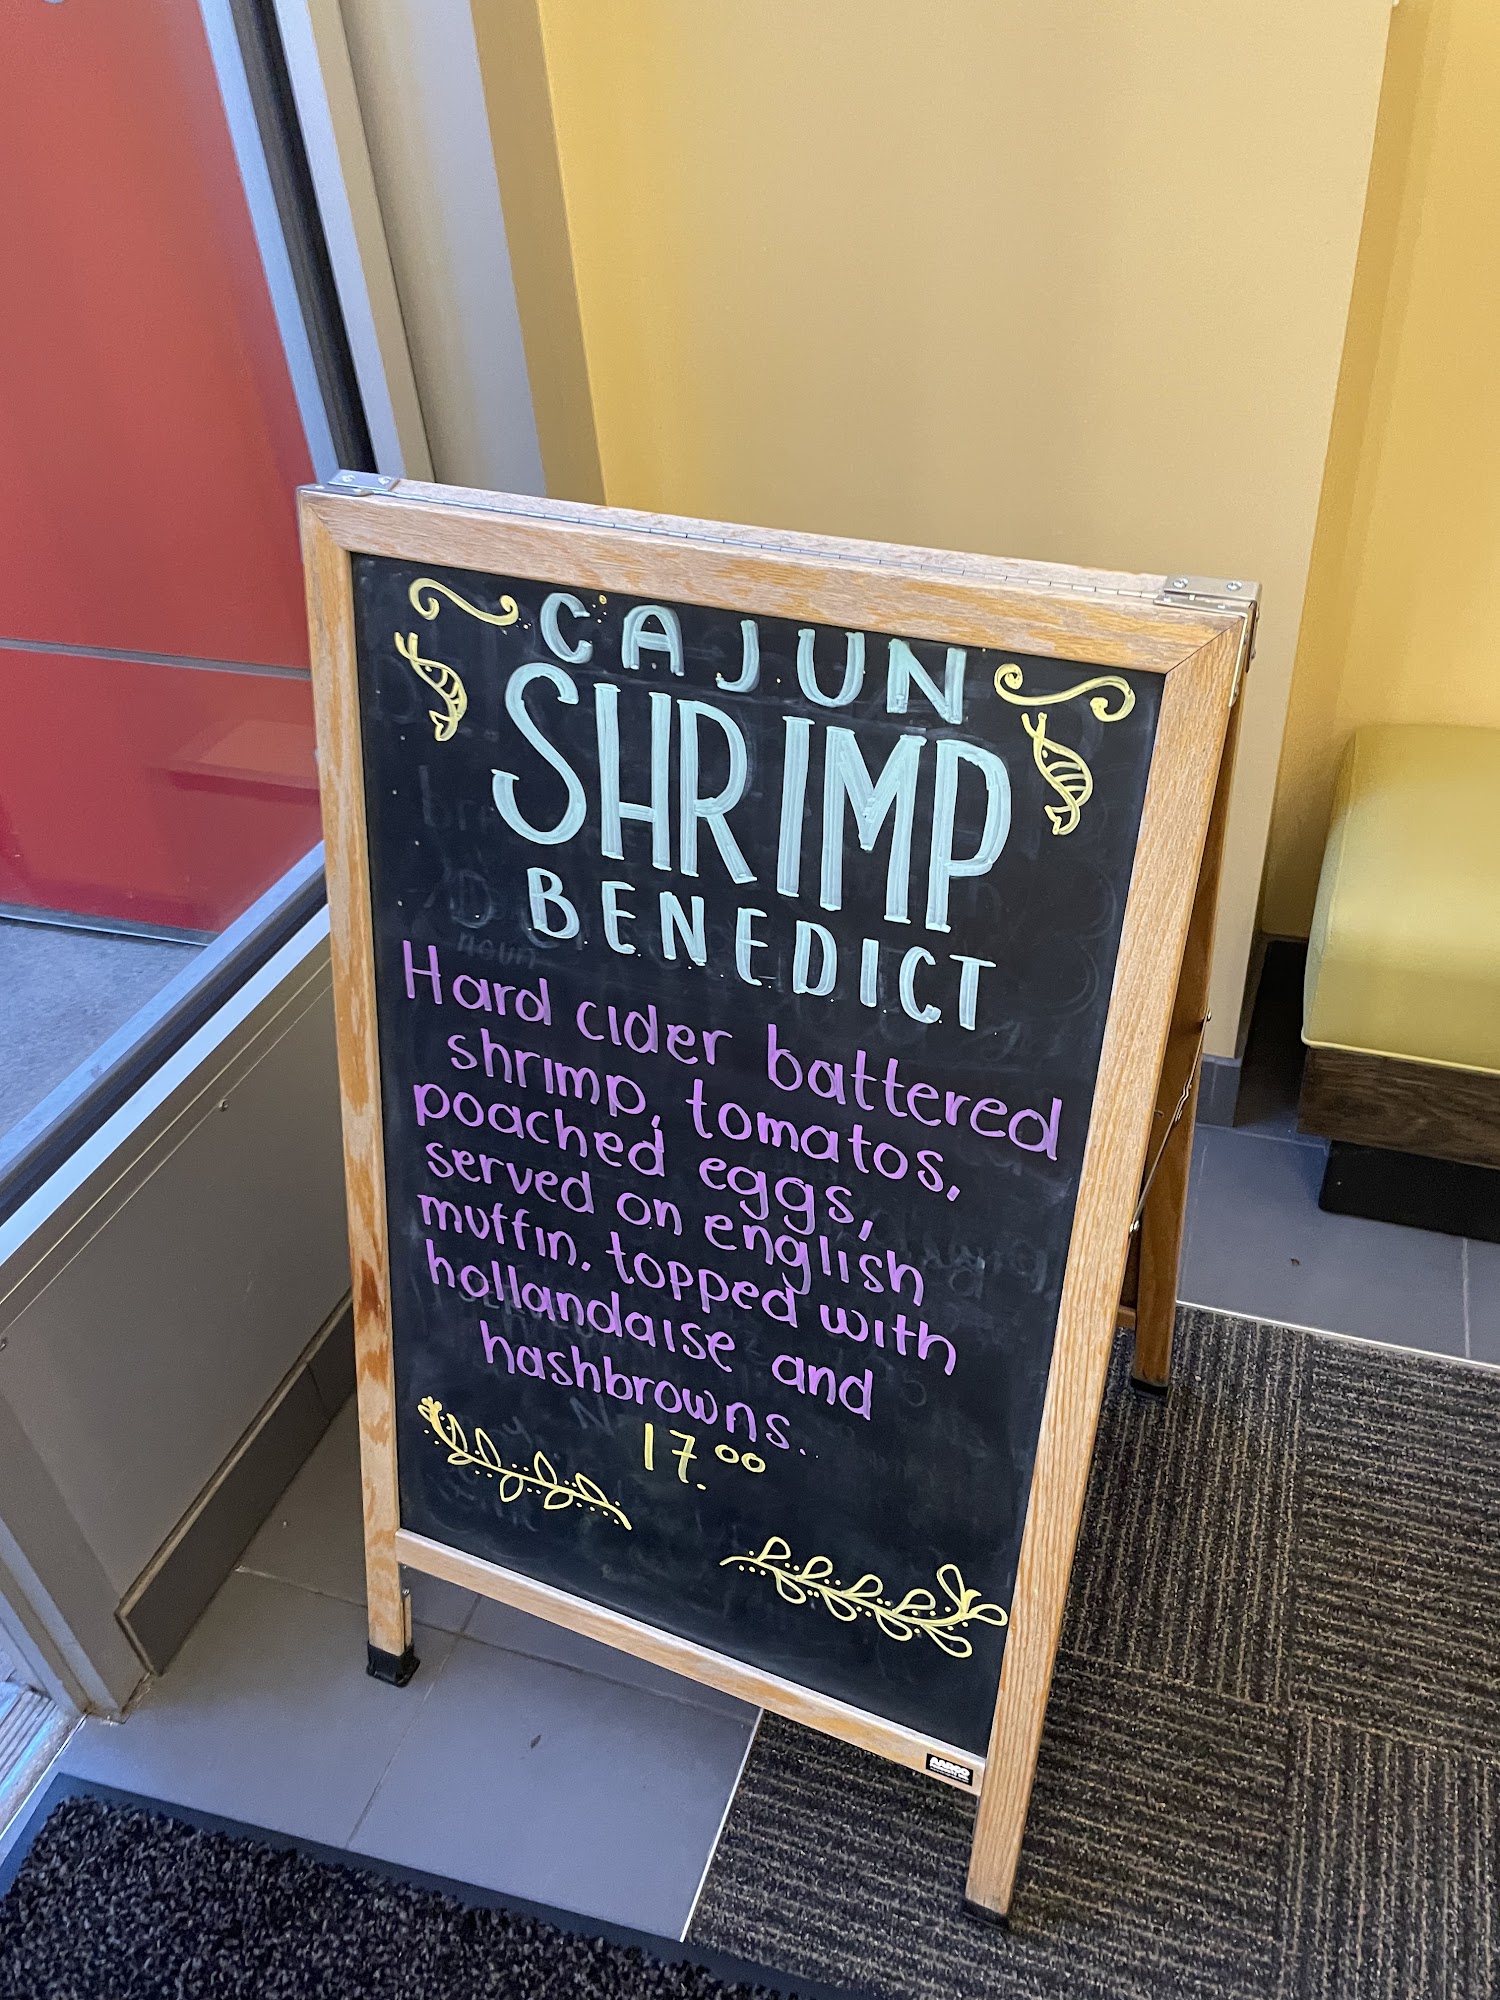 CAJUN
SHRIMP
BENEDICT
Hard cider battered
shrimp, tomatos,
poached eggs,
served on english
muffin. topped with
hollandaise and
hashbrowns.
17.00
noun
AARCO